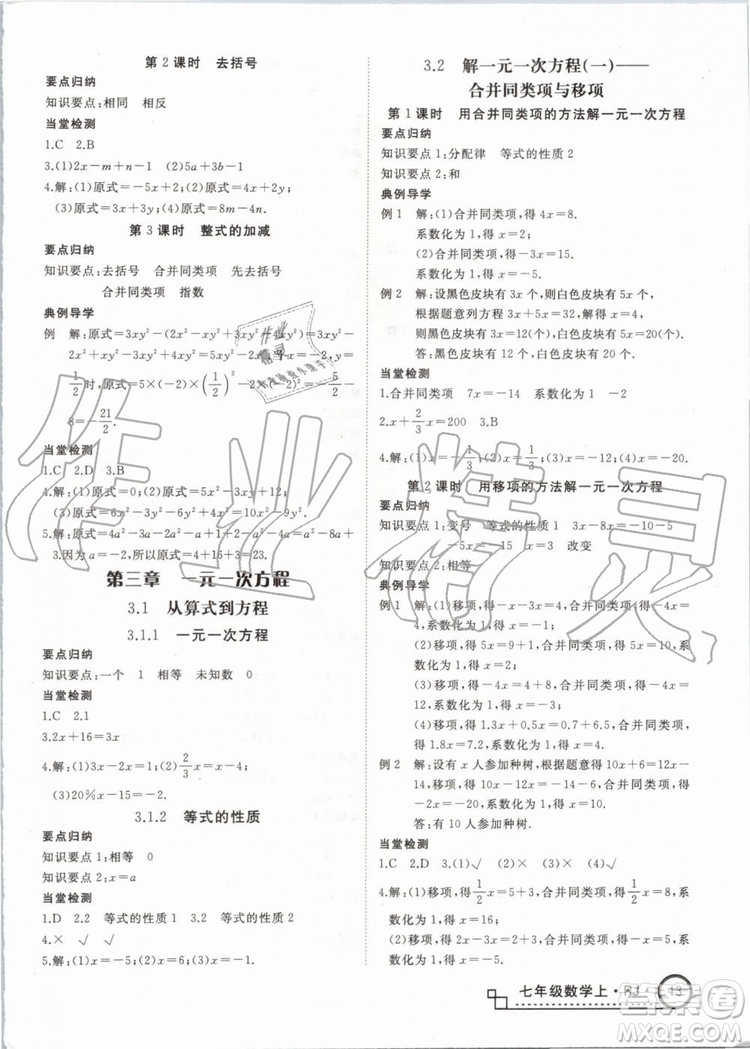 第2课时 去括号
要点归纳
知识要点:相同 相反
当堂检测
1.C 2.B
3.(1)2x-m-1 (2)5a+3b-1
4.解:(1)原式=-5x+2; (2)原式=4x-6;
(3)原式=2x²-5x+x; (4)原式=8m-4n.
第3课时 整式的加减
要点归纳
知识要点:去括号 合并同类项 先去括号
合并同类项 指数
典例导学
2x²+xy²-3xy²-2x²=5xy²
1/2时,原式=5×(-2)×(1/2)²
8=-21/2.
当堂检测
1.C 2.D 3.B
4.解:(1)原式
(3)原式=
5.解:原式=4a²-3a-
3.因为a=2,所以原式=4×4+4×2-3=23.
第三章 一元一次方程
3.1 从算式到方程
3.1.1 一元一次方程
要点归纳
知识要点:一个 1 相等 未知数 0
当堂检测
1.C 2.1
3.2x+16=3x
4.解:(1)3x-2=-4;(2)2/3x-x=4;
(3)20%x-15=-2.
3.1.2 等式的性质
要点归纳
知识要点1:相等 0
知识要点2:x=a
当堂检测
1.D 2.2 等式的性质1 3.2 等式的性质2
4.× √ √
5.解:(1)x=9;(2)x=-2;(3)x=3;(4)x=-10.
3.2 解一元一次方程(一)——
合并同类项与移项
第1课时 用合并同类项的方法解一元一次方程
要点归纳
知识要点1:分配律 等式的性质2
知识要点2:和
典例导学
例1 解:(1)合并同类项,得4x=8.
系数化为1,得x=2.
(2)合并同类项,得4x=-4.
系数化为1,得x=-1.
例2 解:设黑色皮块有3x个,则白色皮块有5x个,
根据题意列方程3x+5x=32,解得x=4,
则黑色皮块有3x=12(个),白色皮块有5x=20(个).
答:黑色皮块有12个,白色皮块有20个.
当堂检测
1.合并同类项 7x=-14 系数化为1 -2
2.x+2/3x=200 3.B
4.解:(1)x=-5;(2)x=1/3;(3)x=4;(4)x=-20.
第2课时 用移项的方法解一元一次方程
要点归纳
知识要点1:变号 等式的性质1 3x-8x=-10-5
-5x=-15 x=3 改变
知识要点2:相等
典例导学
例1 解:(1)移项,得-x-3x=-4.合并同类项,得
-4x=4.系数化为1,得x=-1;
(2)移项,得5x=9+1,合并同类项,得5x=10.
系数化为1,得x=2;
(3)移项,得-4x=4+8,合并同类项,得-4x=
12.系数化为1,得x=-3;
(4)移项,得1.3x+0.5x=0.7+6.5.合并同类项,
得1.8x=7.2.系数化为1,得x=4.
例2 解:设有x人参加种树,则根据题意得10x+6=12x
-14.移项,得10x-12x=-14-6,合并同类项,得
-2x=-20.系数化为1,得x=10.
答:有10人参加种树.
当堂检测
1.C 2.D 3.(1)√ (2)× (3)× (4)√
4.解:(1)移项,得1/2x=5+3,合并同类项,得1/2x=8,
系数化为1,得x=16;
(2)移项,得2x-3x=4-2,合并同类项,得-x=2,
系数化为1,得x=-2.
七年级数学上·RJ·
作业精灵
MXQE.COM